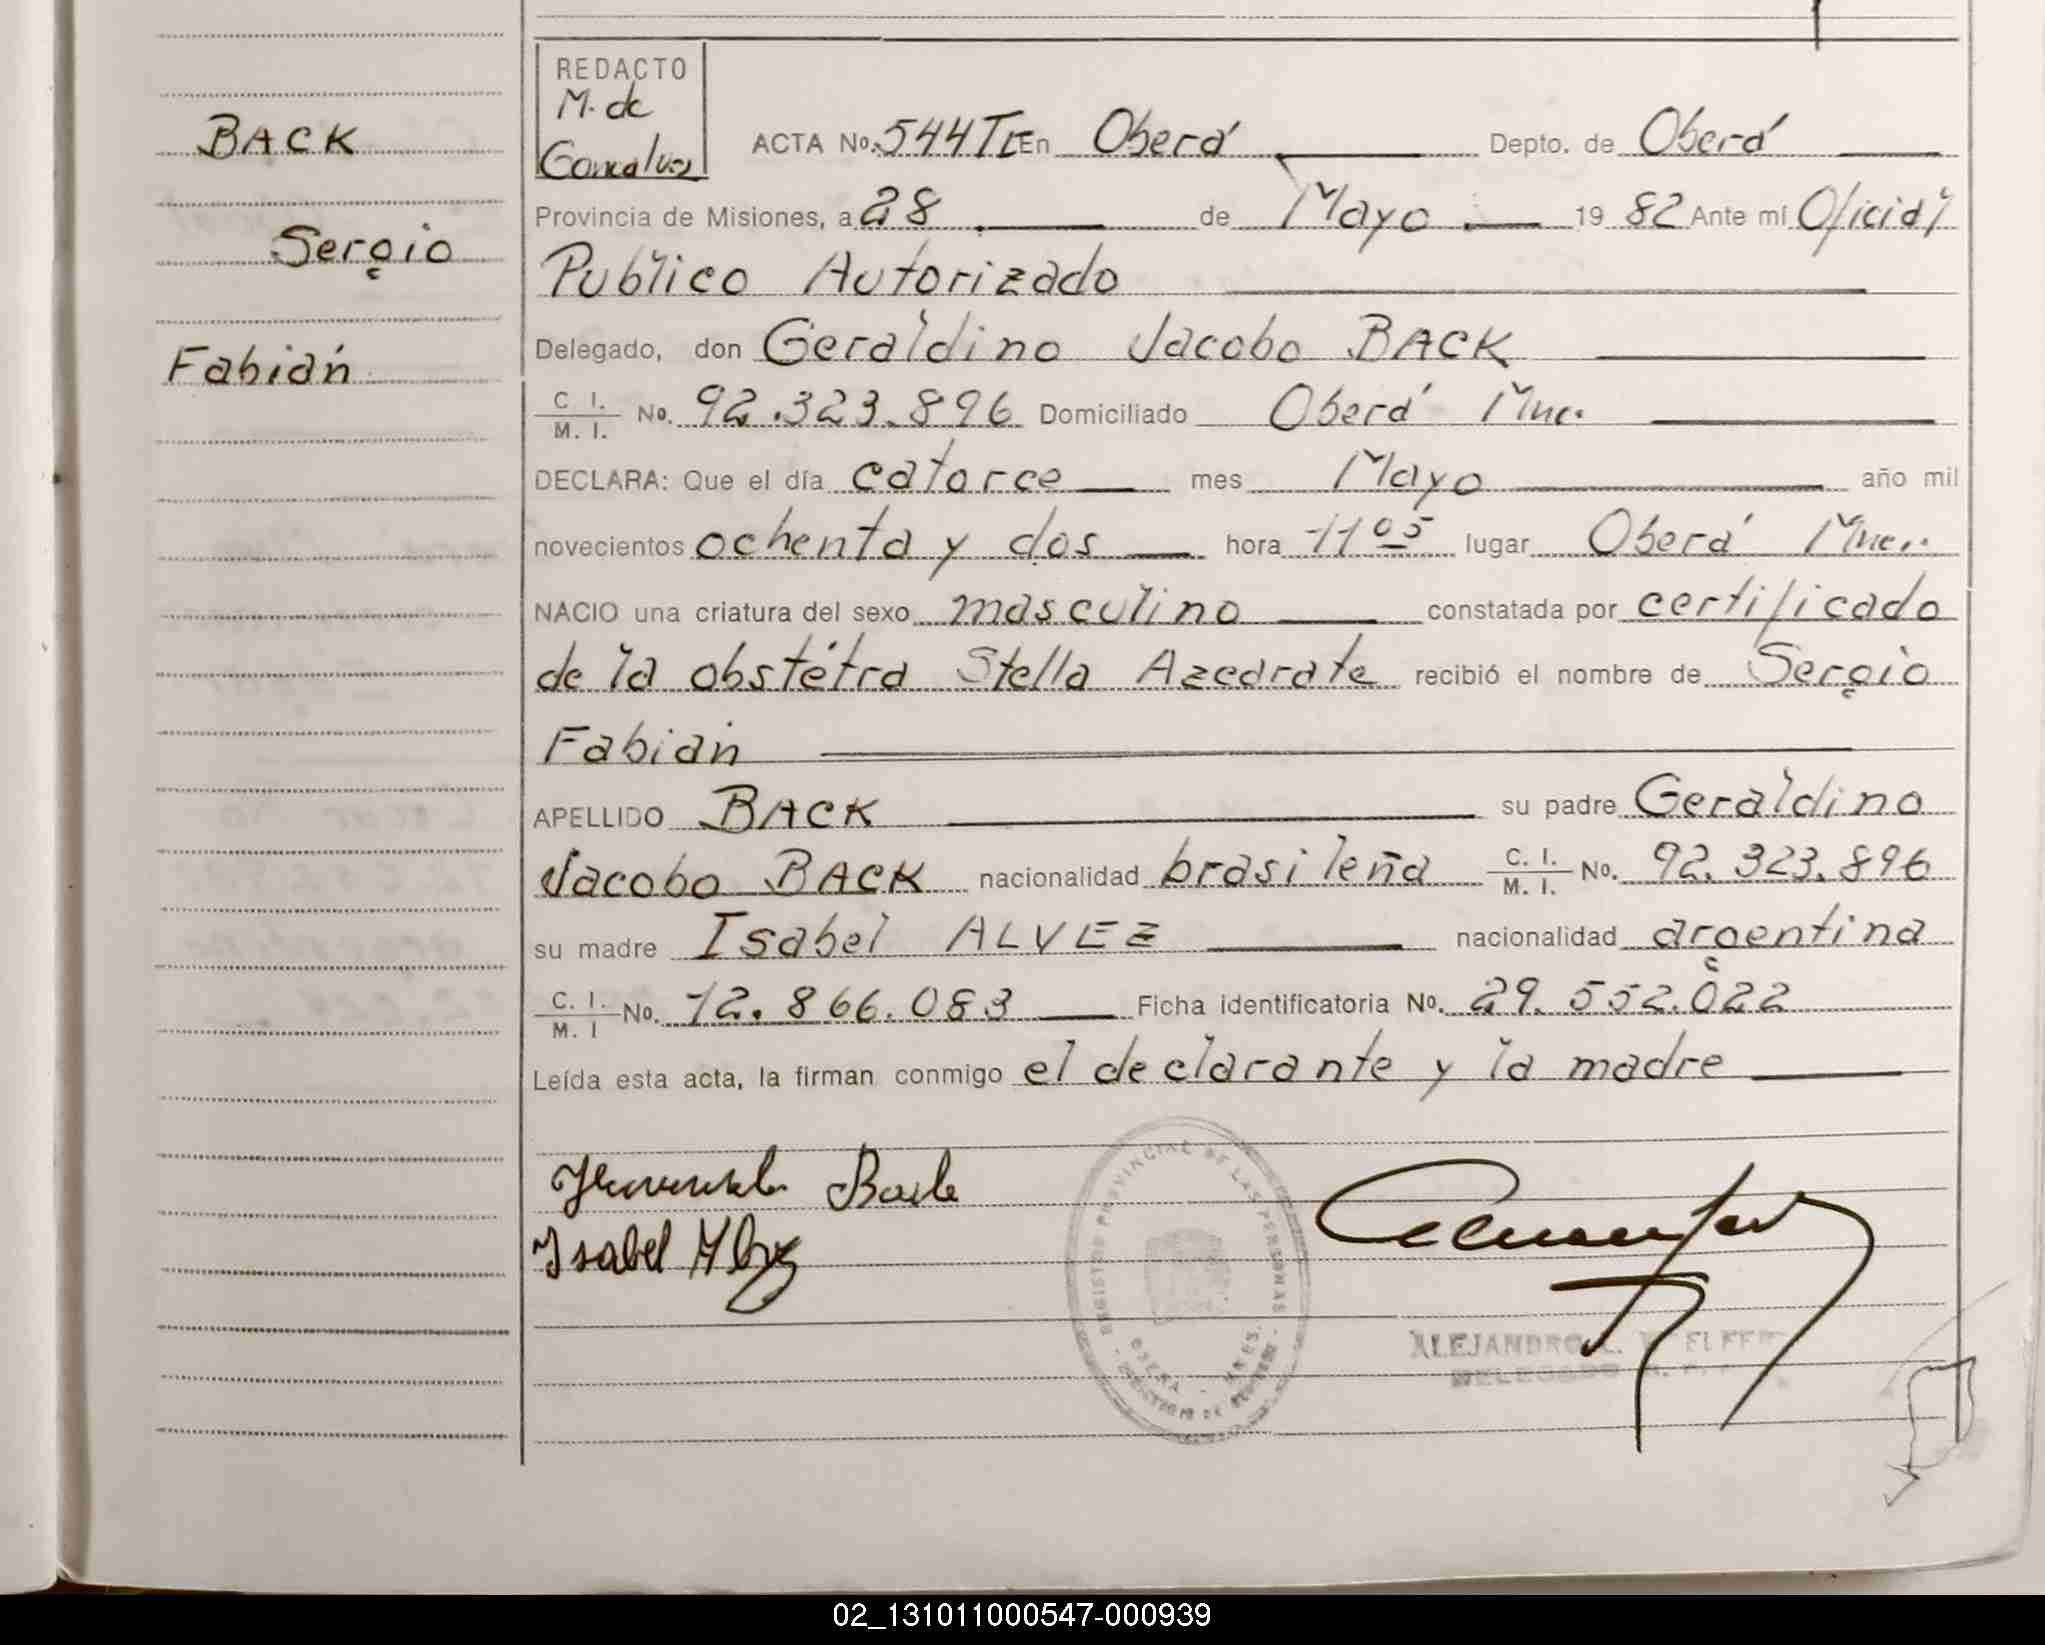 REDACTO
M. de
Goncalvez
BACK
Sergio
Fabián
ACTA No. 544 TI En Oberá Depto. de Oberá
Provincia de Misiones, a 28 de Mayo 19 82 Ante mí Oficial
Publico Autorizado
Delegado, don Geraldino Jacobo BACK
C. I. / M. I. No. 92.323.896 Domiciliado Oberá Mnes.
DECLARA: Que el día catorce mes Mayo año mil
novecientos ochenta y dos hora 11 05 lugar Oberá Mnes.
NACIO una criatura del sexo masculino constatada por certificado
de la obstétra Stella Azedrate recibió el nombre de Sergio
Fabián
APELLIDO BACK su padre Geraldino
Jacobo BACK nacionalidad brasileña C. I. / M. I. No. 92.323.896
su madre Isabel ALVEZ nacionalidad argentina
C. I. / M. I No. 12.866.083 Ficha identificatoria No. 29.552.022
Leída esta acta, la firman conmigo el declarante y la madre
Isabel Alvez
REGISTRO PROVINCIAL DE LAS PERSONAS
OBERA - MNES.
ALEJANDRO
DELEGADO
02_131011000547-000939